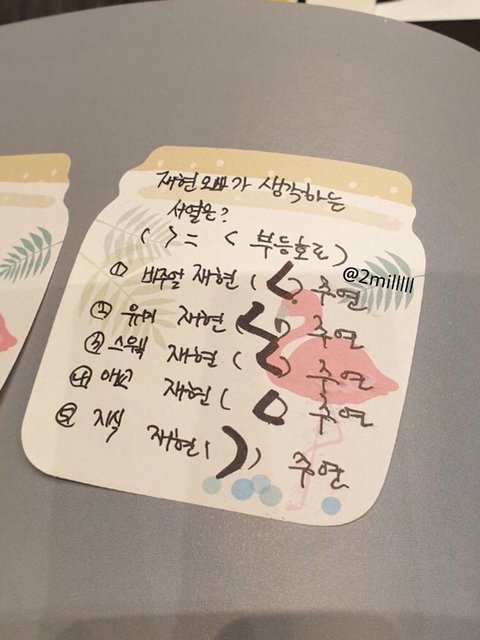 재현오빠가 생각하는
서열은?
( ) = < 부등호로)
① 비주얼 재현 ( < ) 주연
@2millll
② 유머 재현 ( < ) 주연
③ 스웩 재현 ( < ) 주연
④ 애교 재현 ( 0 주연
⑤ 지식 재현 ( > ) 주연